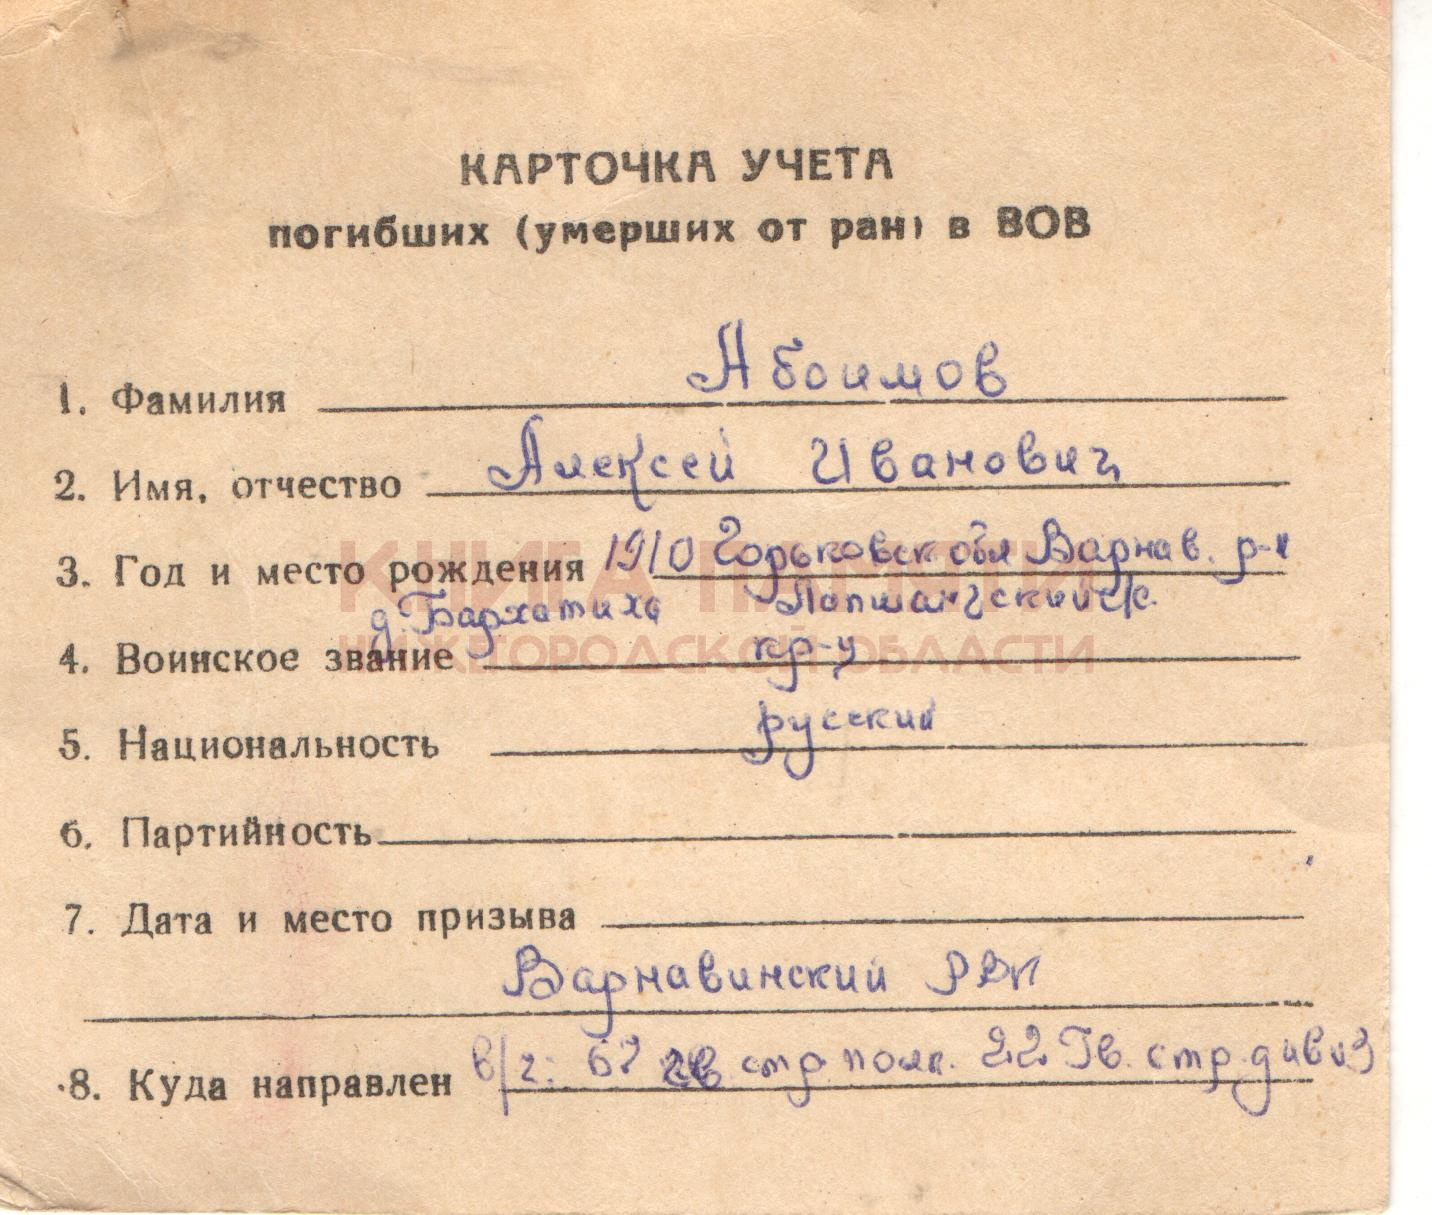 КАРТОЧКА УЧЕТА
погибших (умерших от ран) в ВОВ
1. Фамилия Абоимов
2. Имя, отчество Алексей Иванович
3. Год и место рождения 1910 Горьковск обл Варнав. р-н
д. Бархатиха Лапшангский с/с.
4. Воинское звание кр-ц
КНИГА ПАМЯТИ
НИЖЕГОРОДСКОЙ ОБЛАСТИ
5. Национальность русский
6. Партийность
7. Дата и место призыва
Варнавинский РВК
8. Куда направлен в/ч: 67 гв стр. полк. 22 Гв. стр. дивиз